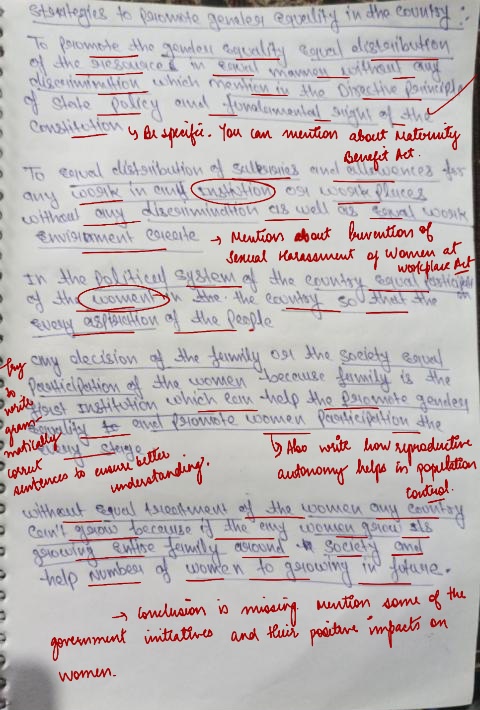 Strategies to promote gender equality in the country :-
To promote the gender equality equal distribution
of the resources in equal manner without any
discrimination which mention in the Directive principle
of State Policy and fundamental right of the
Constitution
→ Be specific. You can mention about Maternity
Benefit Act.
To equal distribution of and allowances for
any work in any institution or work places
without any discrimination as well as equal work
environment create
→ Mention about Prevention of
Sexual Harassment of Women at
workplace Act
In the political system of the country equal
of the women in the the country so that the
every aspiration of the people
any decision of the family or the society equal
Participation of the women because family is the
first institution which can help the promote gender
equality to and promote women participation the
every stage
Try
to
write
gram-
matically
correct
sentences to ensure better
understanding.
→ Also write how reproductive
autonomy helps in population
control.
without equal treatment of the women any country
can't grow because if the any women grow is
growing entire family around society and
help number of women to growing in future.
→ Conclusion is missing. Mention some of the
government initiatives and their positive impacts on
women.